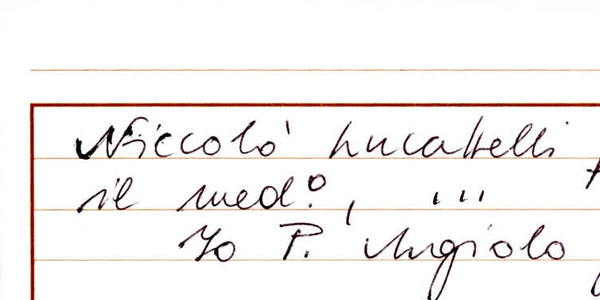 Niccolò Lucattelli
il med.º, ...
Io P. Angiolo